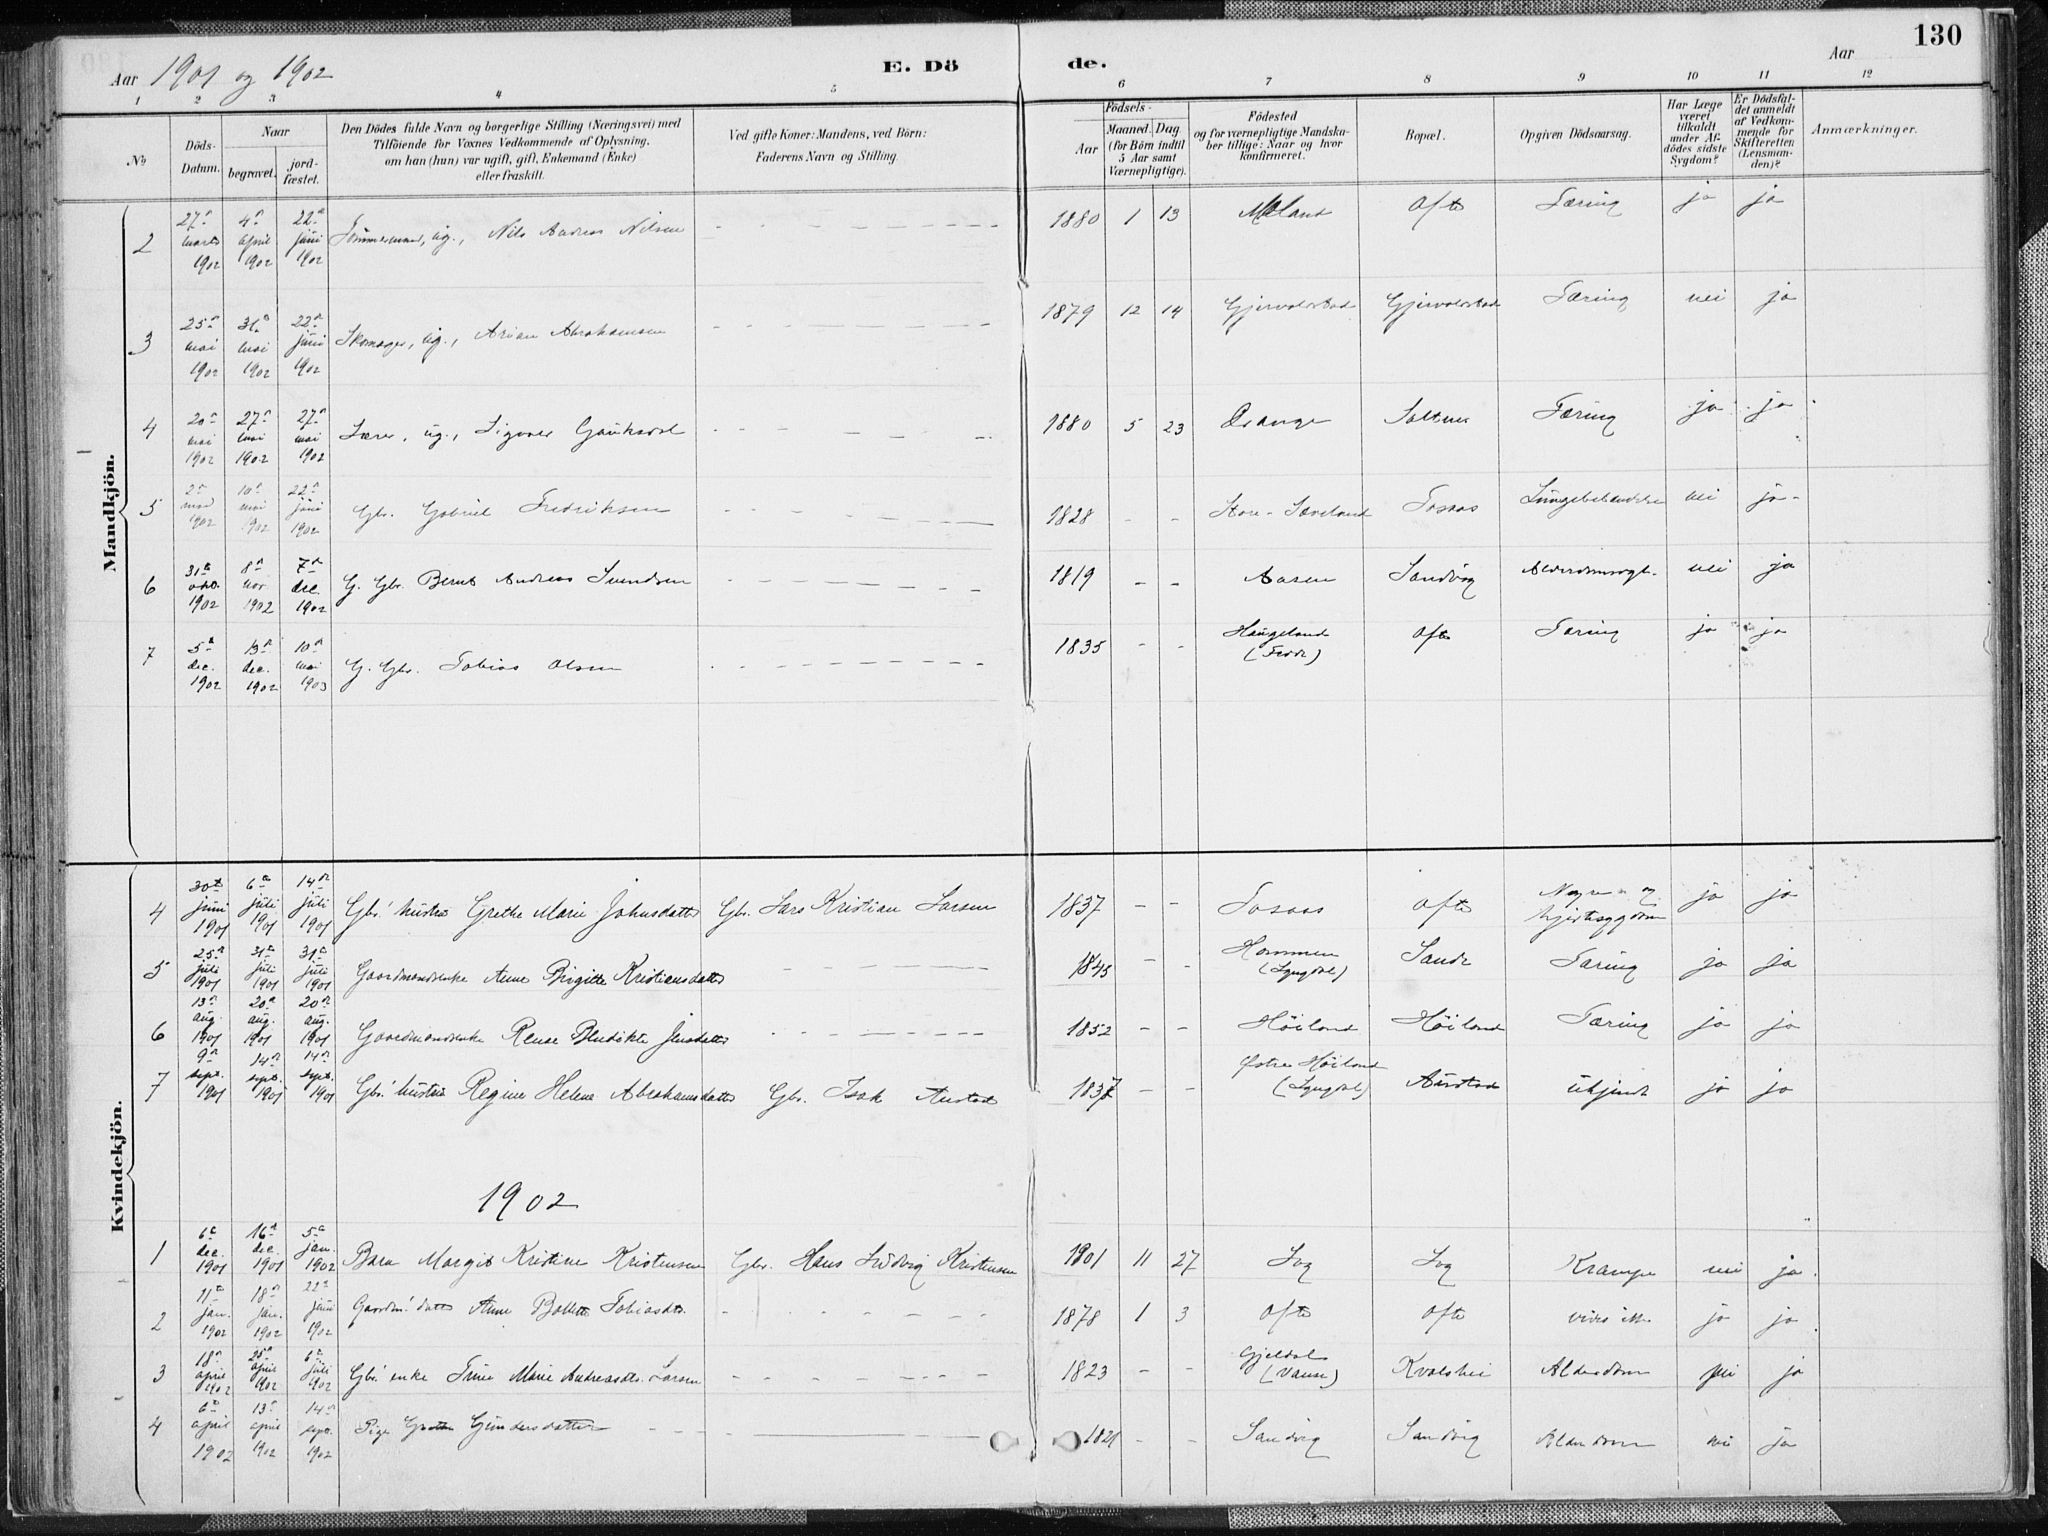 130
Aar 1901 og 1902
E. Dö
de.
Aar
1 2 3 4 5 6 7 8 9 10 11 12
No
Döds-Datum.
Naar
begravet.
jord-fæstet.
Den Dödes fulde Navn og borgerlige Stilling (Næringsvei) med
Tilföiende for Voxnes Vedkommende af Oplysning,
om han (hun) var ugift, gift, Enkemand (Enke)
eller fraskilt.
Ved gifte Koner: Mandens, ved Börn:
Faderens Navn og Stilling.
Födsels-
Aar
Maaned. Dag
(for Börn indtil
5 Aar samt
Værnepligtige).
Födested
og for værnepligtige Mandska-
ber tillige: Naar og hvor
konfirmeret.
Bopæl.
Opgiven Dödsaarsag.
Har Læge
været
tilkaldt
under Af-
dödes sidste
Sygdom?
Er Dödsfal-
det anmeldt
af Vedkom-
mende for
Skifteretten
(Lensman-
den)?
Anmærkninger.
Mandkjön.
2 27de marts 1902 4de april 1902 22de juni 1902 Tømmermand, ug., Nils Andreas Nilsen 1880 1 13 Mæland Ofte Tæring ja ja
3 25de mai 1902 31te mai 1902 22de juni 1902 Skomager, ug., Arian Abrahamsen 1879 12 14 Gjervoldstad Gjervoldstad Tæring nei ja
4 20de mai 1902 27de mai 1902 27de mai 1902 Lærer, ug., Sigvald 1880 5 23 Drange Tæring ja ja
5 2de mai 1902 10de mai 1902 22de juni 1902 Gbr. Gabriel Fredriksen 1828 Tosaas nei ja
6 31te okt. 1902 8de nov. 1902 7de dec. 1902 G. Gbr. Bernt Andreas Svendsen 1819 Aasen Sandvig nei ja
7 5te dec. 1902 13de dec. 1902 10de mai 1903 G. Gbr. Tobias Olsen 1835 Haugeland Ofte Tæring ja ja
Kvindekjön.
4 30te juni 1901 6te juli 1901 14de juli 1901 Gbr.' hustru Grethe Marie Johnsdatter Gbr. Lars Kristian Larsen 1837 Tosaas Ofte Nyre- og hjertesygdom ja ja
5 25de juli 1901 31te juli 1901 31te juli 1901 Gaardmandsenke Anne Birgitte Kristiansdatter 1845 Hommen (Lyngdal) Sande Tæring ja ja
6 13de aug. 1901 20de aug. 1901 20de aug. 1901 Gaardmandsenke Bendikte Jensdatter 1852 Høiland Høiland Tæring ja ja
7 9de sept. 1901 14de sept. 1901 14de sept. 1901 Gbr.' hustru Regine Helene Abrahamsdatter Gbr. Isak Austad 1837 Østre Høiland (Lyngdal) Austad ukjendt ja ja
1902
1 6te dec. 1901 16de dec. 1901 5te jan. 1902 Barn Margit Kristine Kristensen Gbr. Hans Ludvig Kristensen 1901 11 27 Krampe nei ja
2 11te jan. 1902 18de jan. 1902 22de juni 1902 Gaardm.' datter Anne Bolette Tobiasdt. 1878 1 3 Ofte Ofte vides ikke ja ja
3 18de april 1902 25de april 1902 6te juli 1902 Gbr.' enke Trine Marie Andreasdt. Larsen 1823 Gjeldal (Vanse) Kvalshei Alderdom nei ja
4 6te april 1902 13de april 1902 14de sept. 1902 Pige Grethe Gundersdatter 1821 Sandvig Sandvig Alderdom nei ja